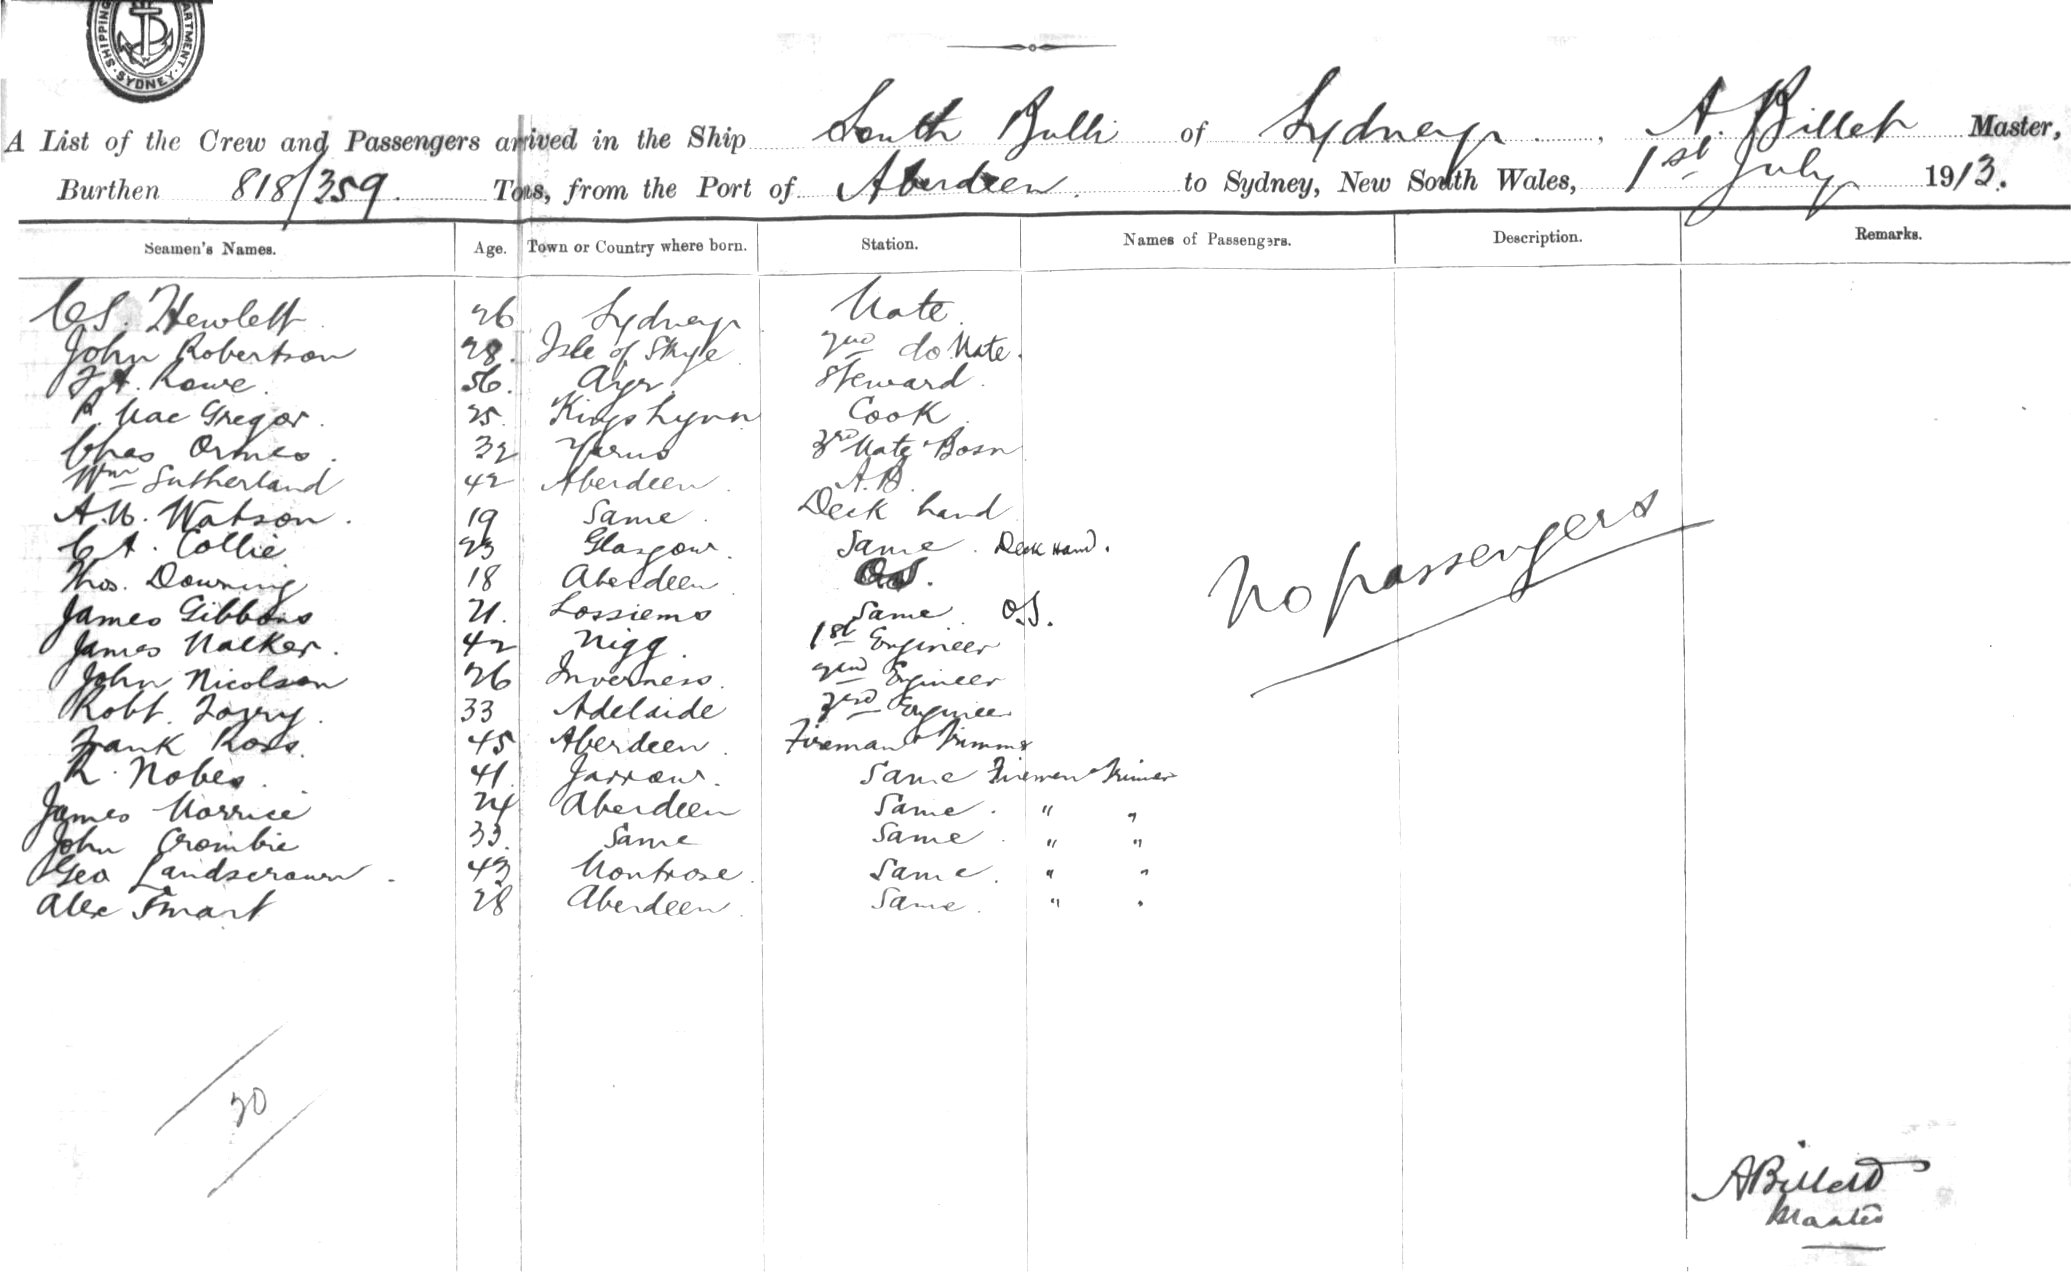 SHIPPING DEPARTMENT. SYDNEY.
A List of the Crew and Passengers arrived in the Ship South Bulli of Sydney, A. Billet Master,
Burthen 818/359. Tons, from the Port of Aberdeen. to Sydney, New South Wales, 1st July 1913.
Seamen's Names. Age. Town or Country where born. Station. Names of Passengers. Description. Remarks.
C.S. Hewlett 26 Sydney Mate
John Robertson 28. Isle of Skye 2nd do Mate.
Rowe. 56. Ayr. Steward.
R. Mac Gregor. 25. Kings Lynn Cook
Chas Ormes. 32 3rd Mate & Bosn
Wm Sutherland 42 Aberdeen. A.B.
A.M. Watson. 19 Same. Deck hand
C A. Collie 23 Glasgow. Same. Deck Hand.
Thos. Downing 18 Aberdeen O.S.
James Gibbons 21. Lossiemo Same. O.S.
No passengers
James Walker. 42 Nigg. 1st Engineer
John Nicolson 26 Inverness. 2nd Engineer
Robt. 33 Adelaide 3rd Engineer
Frank Ross. 45 Aberdeen. Fireman & Trimmer
R. Nobes. 41. Jarrow. Same Firemen & Trimer
James Morrice 24 Aberdeen Same. " "
John Crombie 33. Same Same. " "
Geo Landscrown. 43 Montrose. Same. " "
Alex Smart 28 Aberdeen. Same. " "
20
A Billett
Master